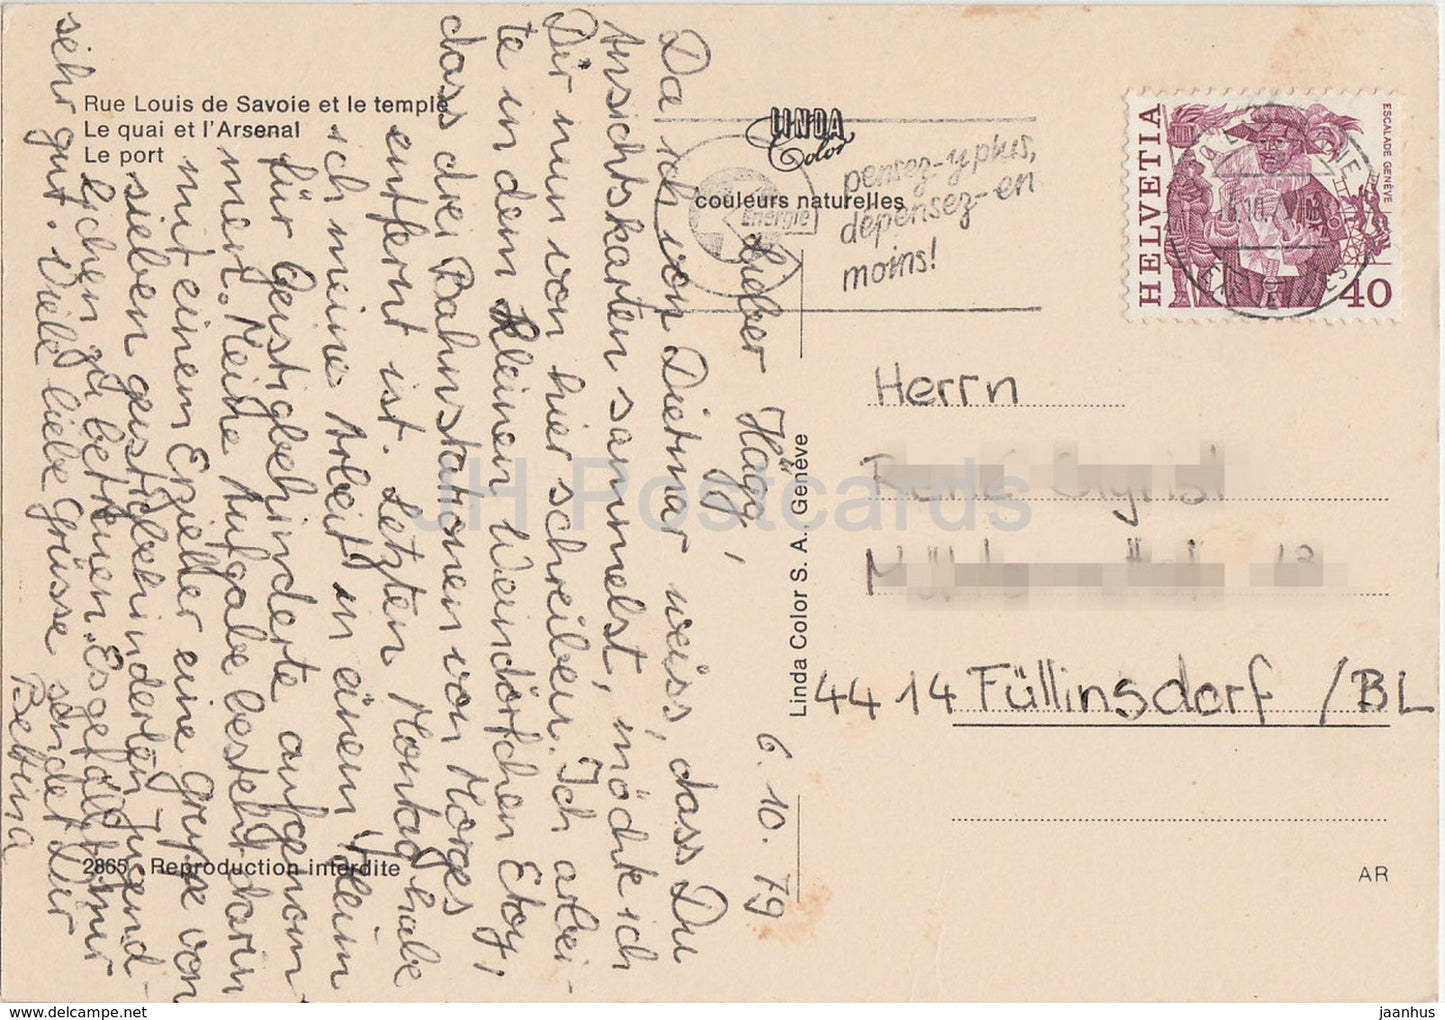 Rue Louis de Savoie et le temple
Le quai et l'Arsenal
Le port
LINDA
Color
couleurs naturelles
Energie
pensez-y plus,
dépensez-en
moins!
HELVETIA
ESCALADE GENÈVE
40
6. 10. 79
Lieber Hägr,
Da ich von Dietmar weiss, dass Du
Ansichtskarten sammelst, möchte ich
Dir nun von hier schreiben. Ich arbei-
te in dem kleinen Weindörfchen Etoy,
dass drei Bahnstationen von Morges
entfernt ist. Letzten Montag habe
ich meine Arbeit in einem Heim
für Geistigbehinderte aufgenom-
mert. Meine Aufgabe besteht darin
mit einem Erzieher eine Gruppe von
sieben geistigbehinderten Jugend-
lichen zu betreuen. Es gefällt mir
sehr gut. Viele liebe Grüsse sendet Dir
Bettina
Herrn
4414 Füllinsdorf /BL
Linda Color S. A., Genève
2865 Reproduction interdite
AR
JH Postcards
hippostcard.com
jaanhus